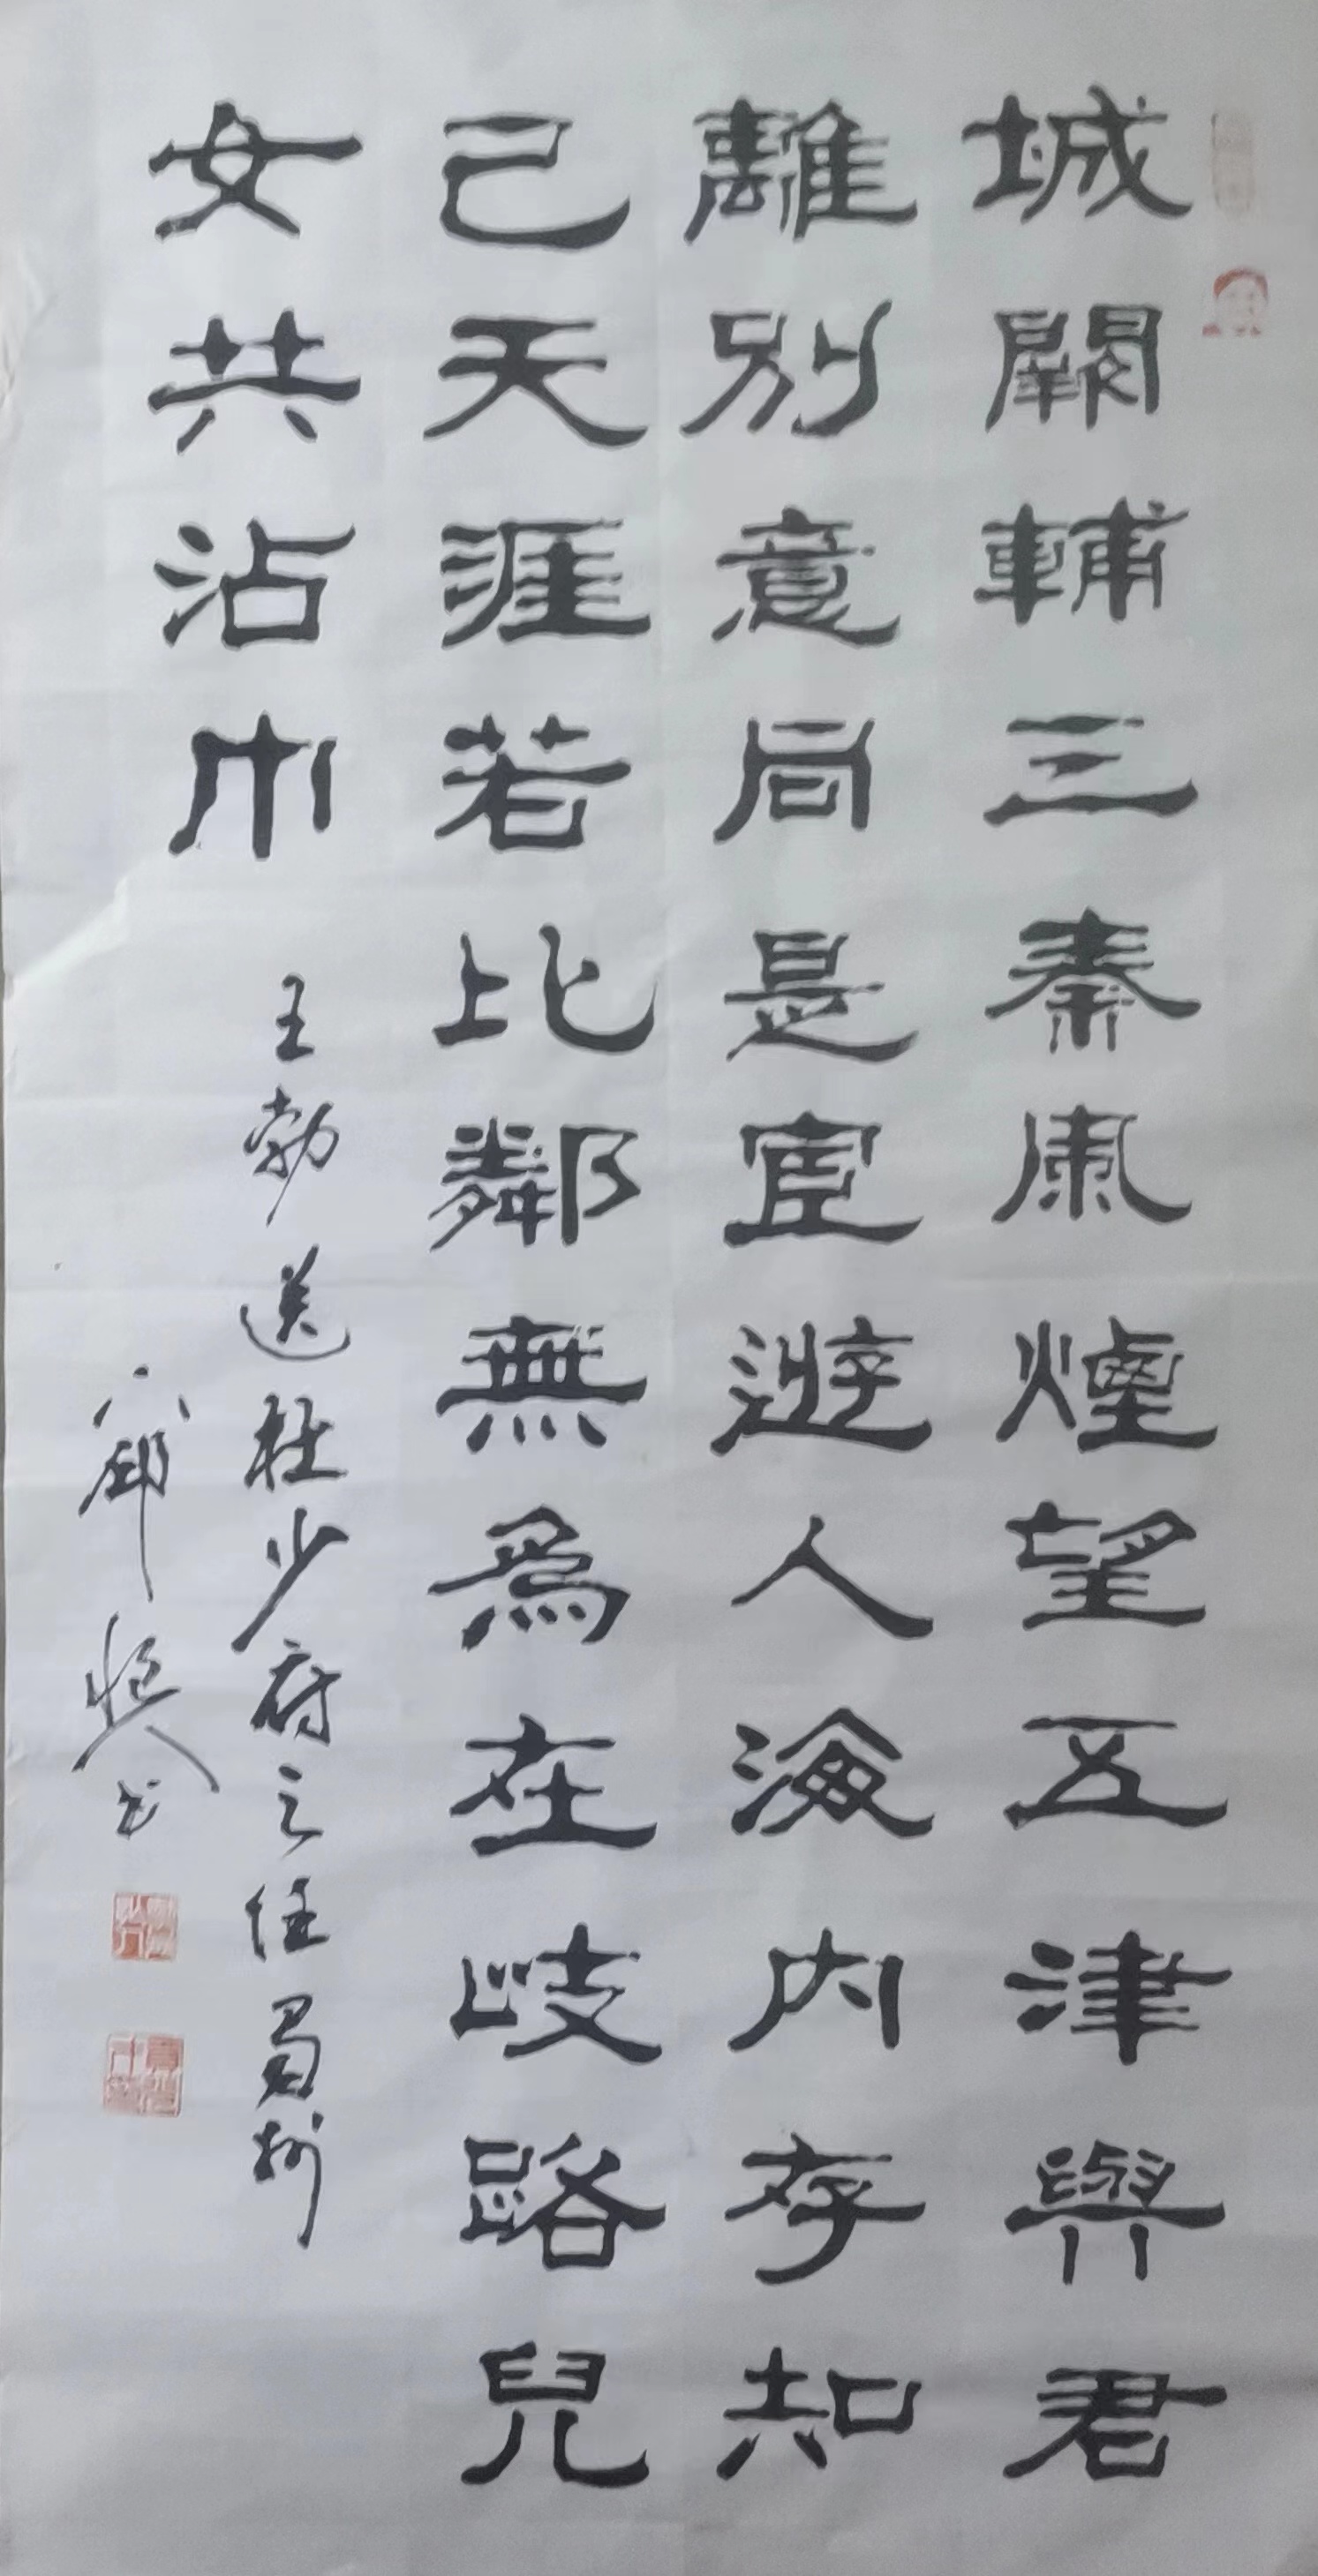 城闕輔三秦風煙望五津與君
離別意同是宦遊人海內存知
己天涯若比鄰無為在歧路兒
女共沾巾
王勃送杜少府之任蜀州